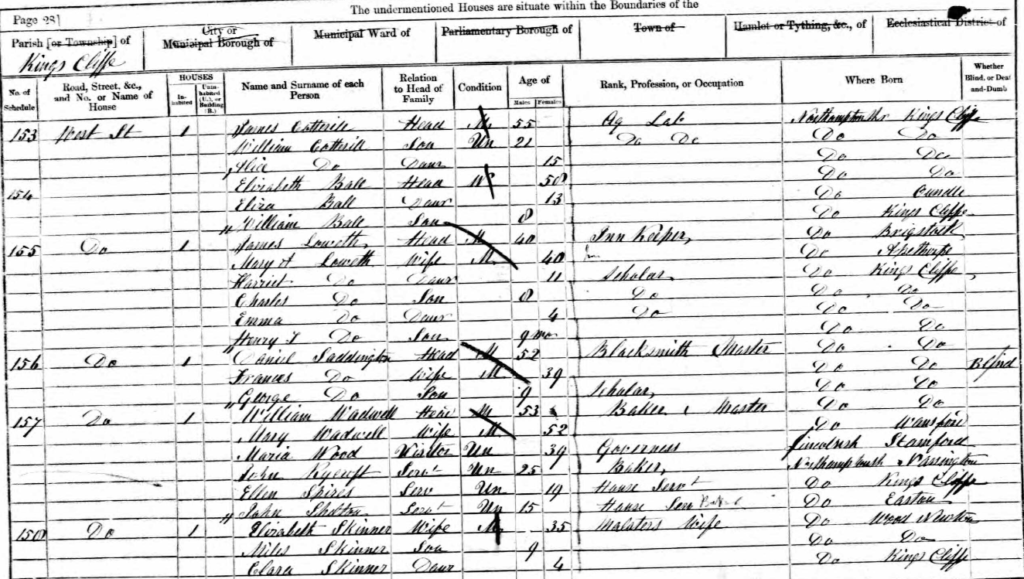 Page 28]
The undermentioned Houses are situate within the Boundaries of the
Parish [or Township] of
City or
Municipal Borough of
Municipal Ward of
Parliamentary Borough of
Town of
Hamlet or Tything, &c., of
Ecclesiastical District of
Kings Cliffe
No. of Schedule
Road, Street, &c., and No. or Name of House
HOUSES
Inhabited
Uninhabited (U.), or Building (B.)
Name and Surname of each Person
Relation to Head of Family
Condition
Age of
Males
Females
Rank, Profession, or Occupation
Where Born
Whether Blind, or Deaf-and-Dumb
153 West St 1 James Cotterill Head 55 Ag Lab Kings Cliffe
William Cotterill Son Un 21 Do Do Do Do
Alice Do Daur 15 Do Do
154 Elizabeth Ball Head W 50 Do Do
Eliza Ball Daur 13 Do Oundle
William Ball Son 8 Do Kings Cliffe
155 Do 1 James Loweth Head M 40 Inn Keeper Do Brigstock
Mary A Loweth Wife M 40 Do Apethorpe
Harriet Do Daur 11 Scholar Do Kings Cliffe
Charles Do Son 8 Do Do Do
Emma Do Daur 4 Do Do Do
Henry Do Son 9 mo Do Do
156 Do 1 Daniel Saddington Head M 52 Blacksmith Master Do Do
Frances Do Wife M 39 Do Do Blind
George Do Son 9 Scholar Do Do
157 Do 1 William Wadwell Head M 53 Baker Master Do Do
Mary Wadwell Wife M 52 Do Wansford
Maria Wood Visitor Un 39 Governess Stamford
John Rycroft Servt Un 25 Baker Nassington
Ellen Spires Serv Un 19 House Servt Do Kings Cliffe
John Servt Un 15 House Do Easton
158 Do 1 Elizabeth Skinner Wife M 35 Malsters Wife Do Wood Newton
Miles Skinner Son 9 Do Do
Clara Skinner Daur 4 Do Kings Cliffe